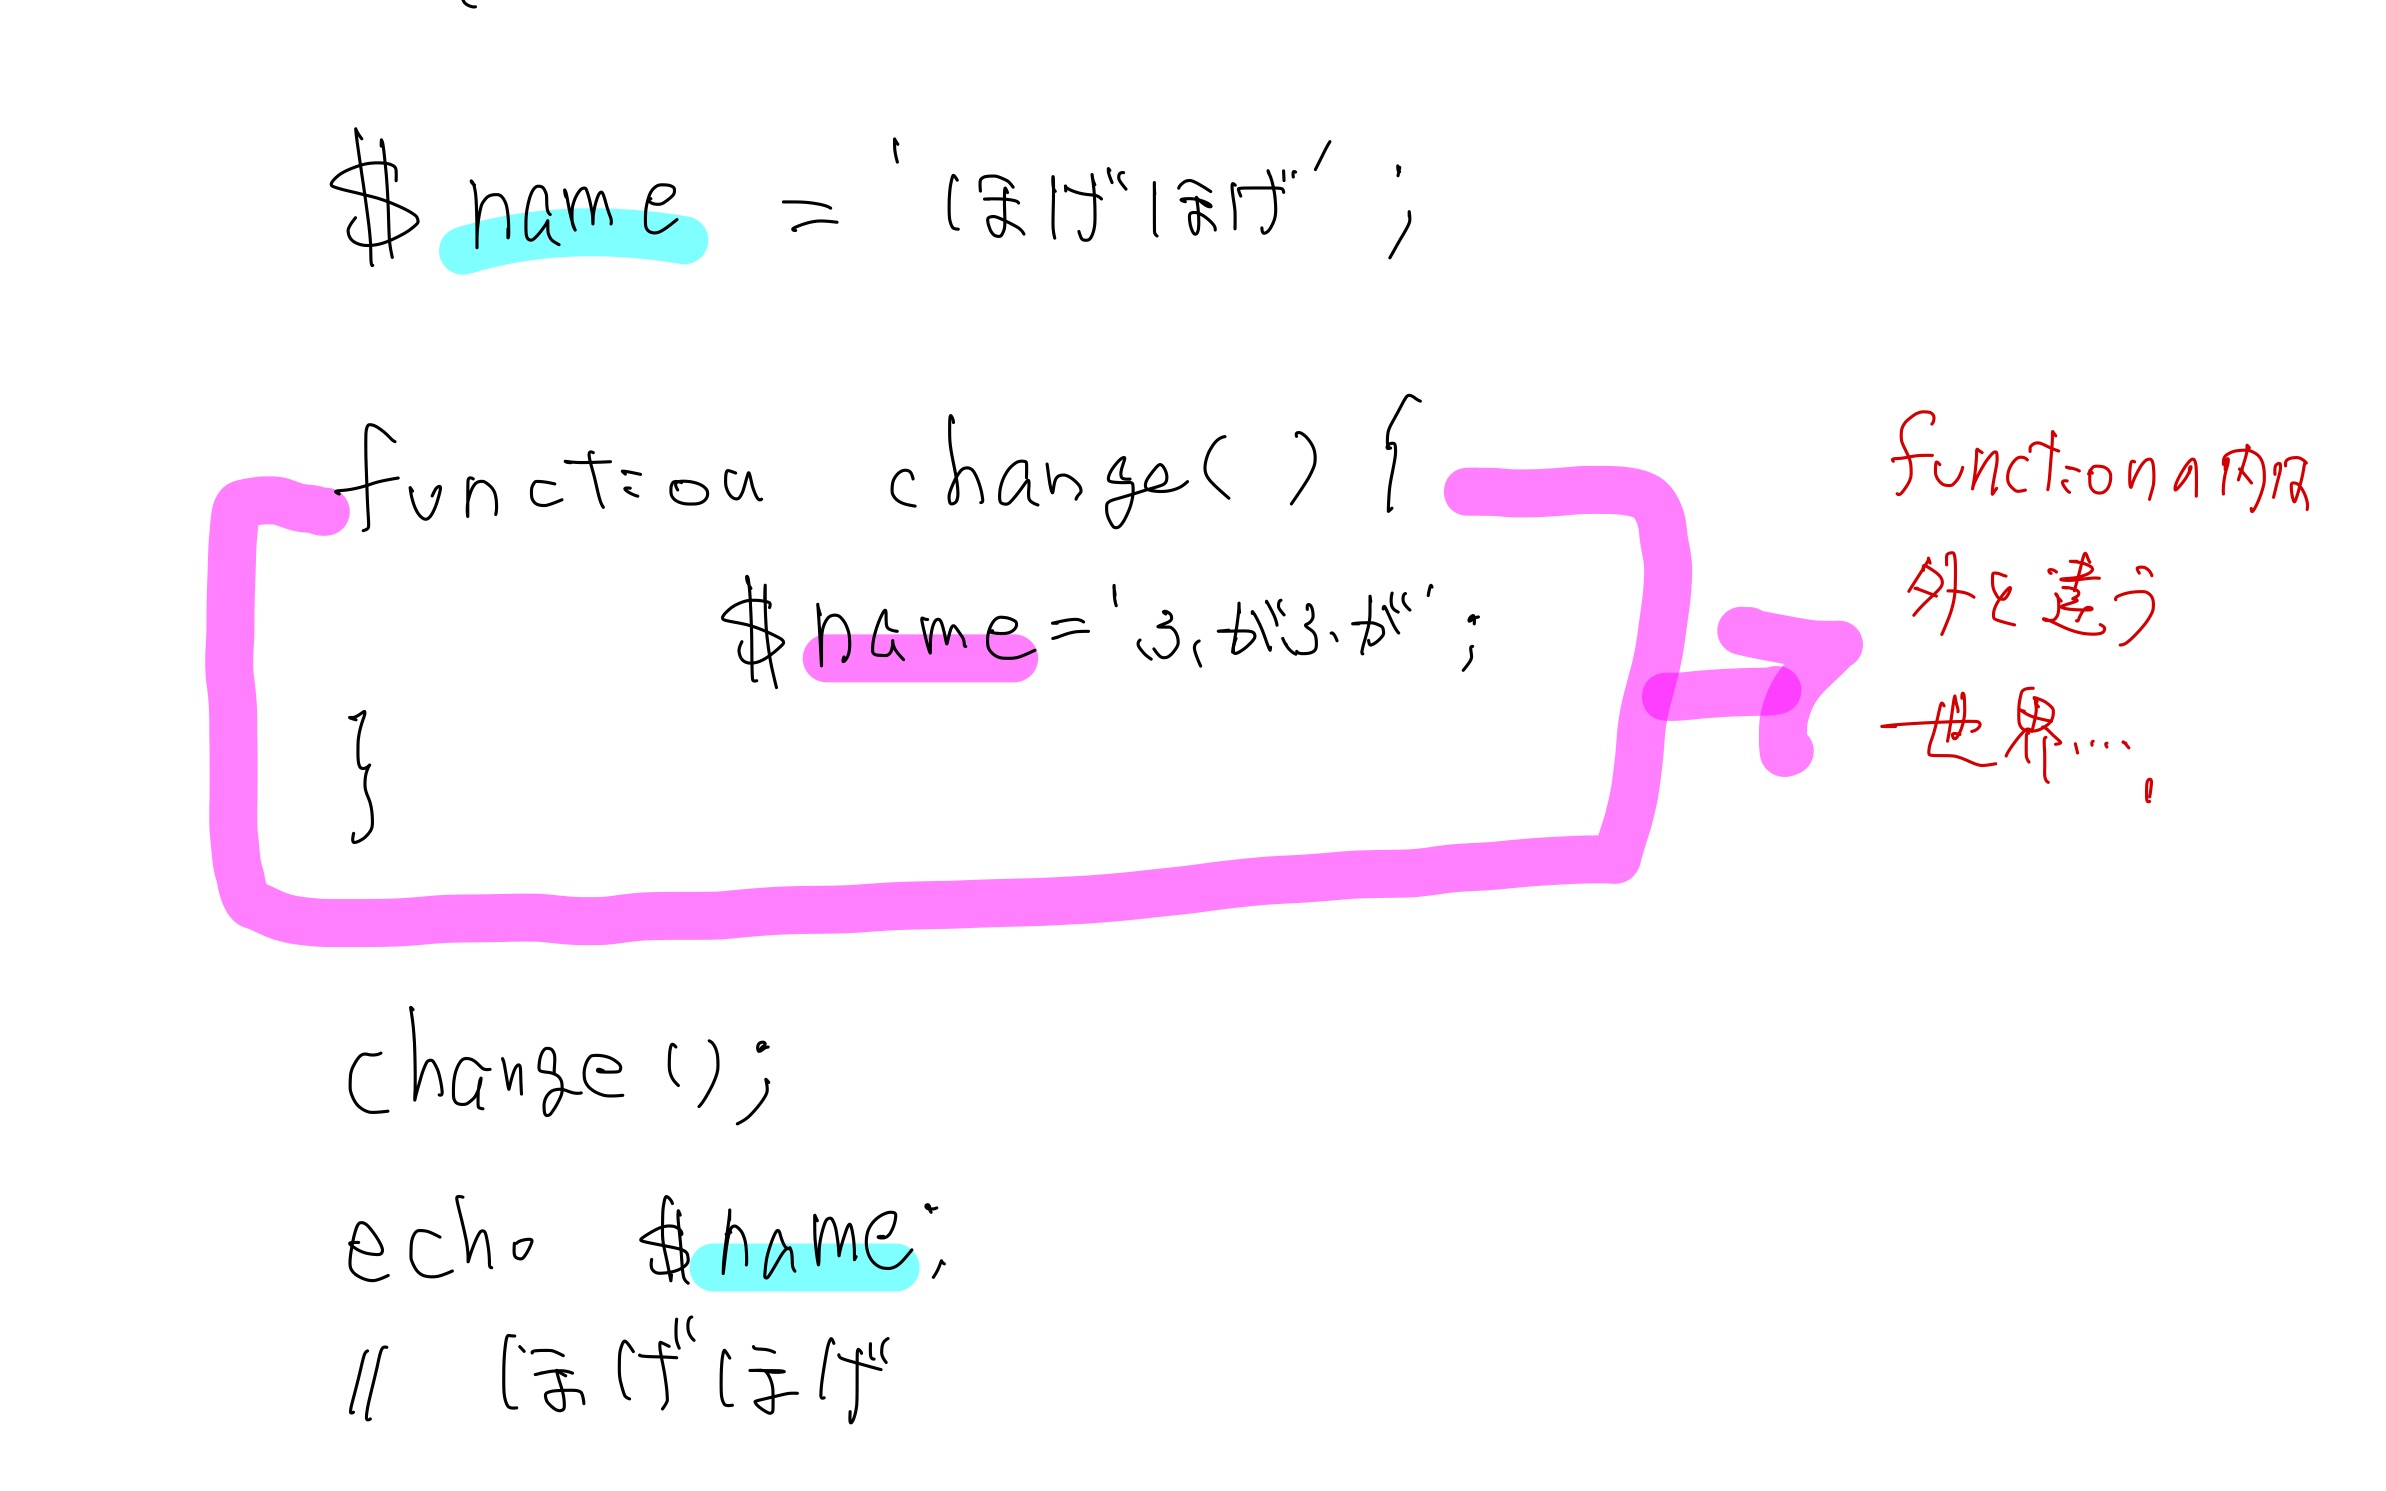 $name = 'ほげほげ';
function change() {
$name = 'ふがふが';
}
function内は
外と違う
世界....。
change();
echo $name;
// ほげほげ